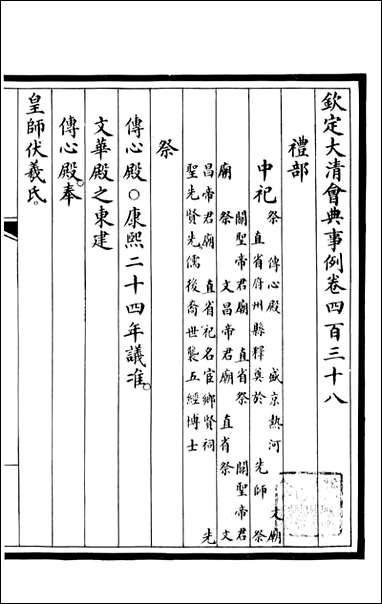 欽定大清會典事例卷四百三十八
禮部
中祀 祭 傳心殿 盛京熱河 文廟
直省府州縣釋奠於 先師 祭
關聖帝君廟 直省祭 關聖帝君
廟 祭 文昌帝君廟 直省祭 文
昌帝君廟 直省祀名宦鄉賢祠 先
聖先賢先儒後裔世襲五經博士
祭
傳心殿○康熙二十四年議准。
文華殿之東建
傳心殿。奉
皇師伏羲氏。